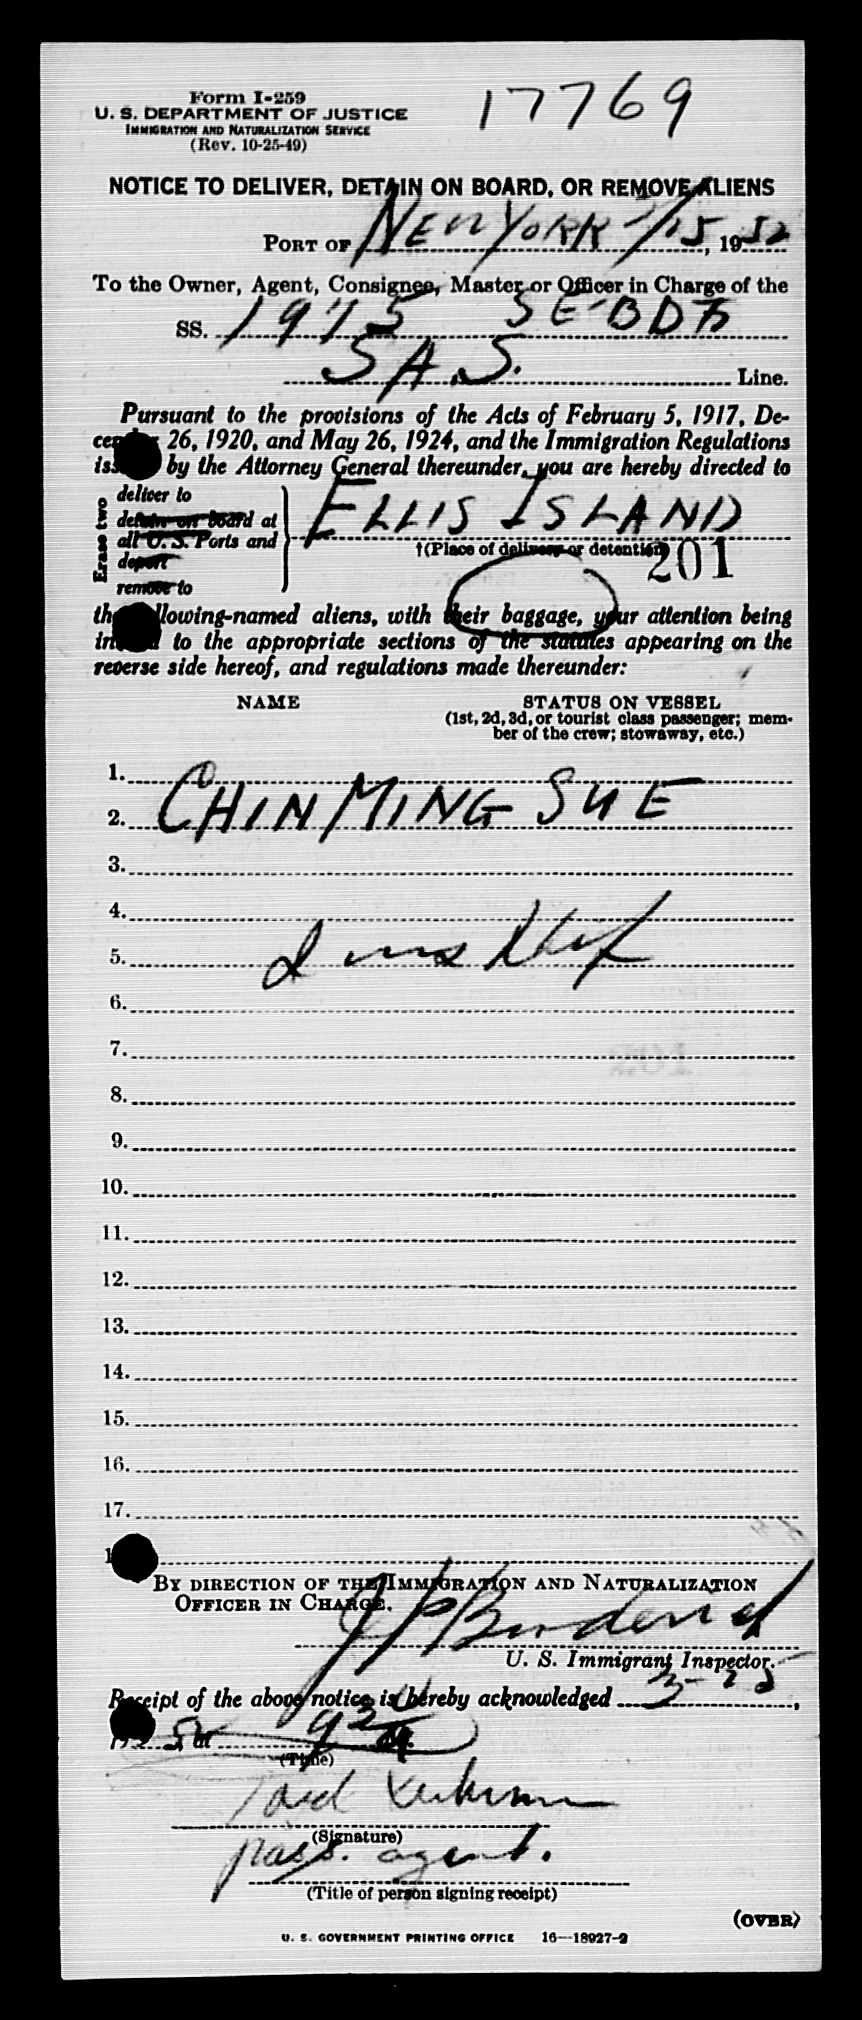 Form I-259
17769
U. S. DEPARTMENT OF JUSTICE
IMMIGRATION AND NATURALIZATION SERVICE
(Rev. 10-25-49)
NOTICE TO DELIVER, DETAIN ON BOARD, OR REMOVE ALIENS
PORT OF NEW YORK /15, 1952
To the Owner, Agent, Consignee, Master or Officer in Charge of the
SS. 1975 SE-BDB
SAS. Line.
Pursuant to the provisions of the Acts of February 5, 1917, De-
cember 26, 1920, and May 26, 1924, and the Immigration Regulations
issued by the Attorney General thereunder, you are hereby directed to
Erase two
deliver to
detain on board at
all U. S. Ports and
deport
remove to
ELLIS ISLAND
†(Place of delivery or detention)
201
the following-named aliens, with their baggage, your attention being
invited to the appropriate sections of the statutes appearing on the
reverse side hereof, and regulations made thereunder:
NAME STATUS ON VESSEL
(1st, 2d, 3d, or tourist class passenger; mem-
ber of the crew; stowaway, etc.)
1.
2. CHIN MING SUE
3.
4.
5.
6.
7.
8.
9.
10.
11.
12.
13.
14.
15.
16.
17.
BY DIRECTION OF THE IMMIGRATION AND NATURALIZATION
OFFICER IN CHARGE.
U. S. Immigrant Inspector.
Receipt of the above notice is hereby acknowledged 3-25,
at
(Time)
(Signature)
pass. agent.
(Title of person signing receipt)
(OVER)
U. S. GOVERNMENT PRINTING OFFICE 16—18927-2